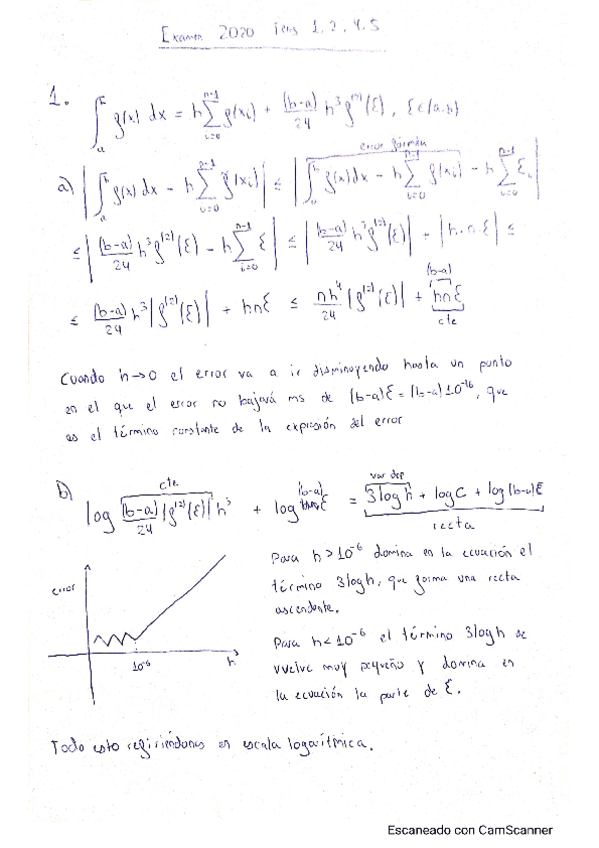 Examen 2020 iens 1, 2, 4, 5
1. ∫_a^b f(x) dx = h ∑_{i=0}^{n-1} f(xi) + (b-a)/24 h³ f^(2)(ξ), ξ ∈ (a,b)
error fórmula
a) |∫_a^b f(x) dx - h ∑_{i=0}^{n-1} f̃(xi)| ≤ |∫_a^b f(x) dx - h ∑_{i=0}^{n-1} f(xi) - h ∑_{i=0}^{n-1} Ei|
≤ |(b-a)/24 h³ f^(2)(ξ) - h ∑_{i=0}^{n-1} ξ| ≤ |(b-a)/24 h³ f^(2)(ξ)| + |h·n·ξ| ≤
(b-a)
≤ (b-a)/24 h³ |f^(2)(ξ)| + hnξ ≤ nh⁴/24 |f^(2)(ξ)| + hnξ
cte
Cuando h→0 el error va a ir disminuyendo hasta un punto
en el que el error no bajará ms de (b-a)ξ = (b-a)10^-16, que
es el término constante de la expresión del error
cte (b-a) var dep
b) log (b-a)/24 |f^(2)(ξ)| h³ + log hnξ = 3 log h + log C + log (b-a)ξ
recta
Para h > 10^-6 domina en la ecuación el
error
término 3 log h, que forma una recta
ascendente.
Para h < 10^-6 el término 3 log h se
10^-6 h
vuelve muy pequeño y domina en
la ecuación la parte de ξ.
Todo esto refiriéndonos en escala logarítmica.
Escaneado con CamScanner